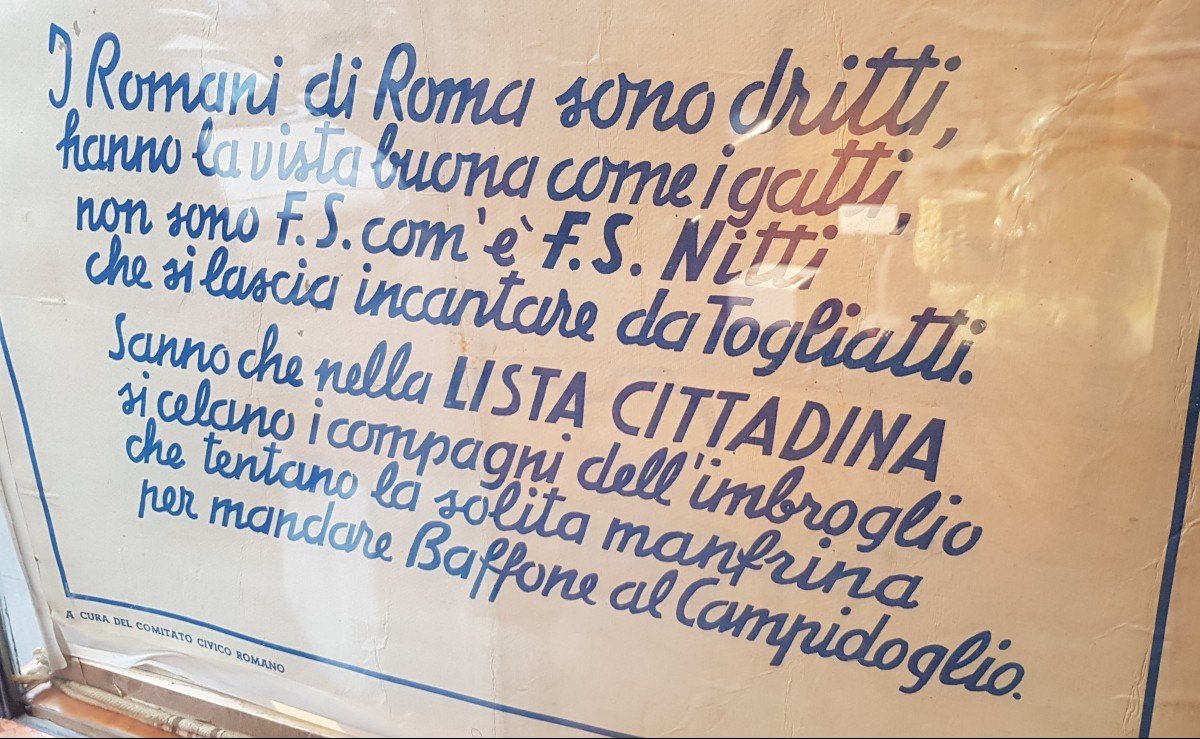 I Romani di Roma sono dritti,
hanno la vista buona come i gatti,
non sono F.S. com'è F.S. Nitti
che si lascia incantare da Togliatti.
Sanno che nella LISTA CITTADINA
si celano i compagni dell'imbroglio
che tentano la solita manfrina
per mandare Baffone al Campidoglio.
A CURA DEL COMITATO CIVICO ROMANO